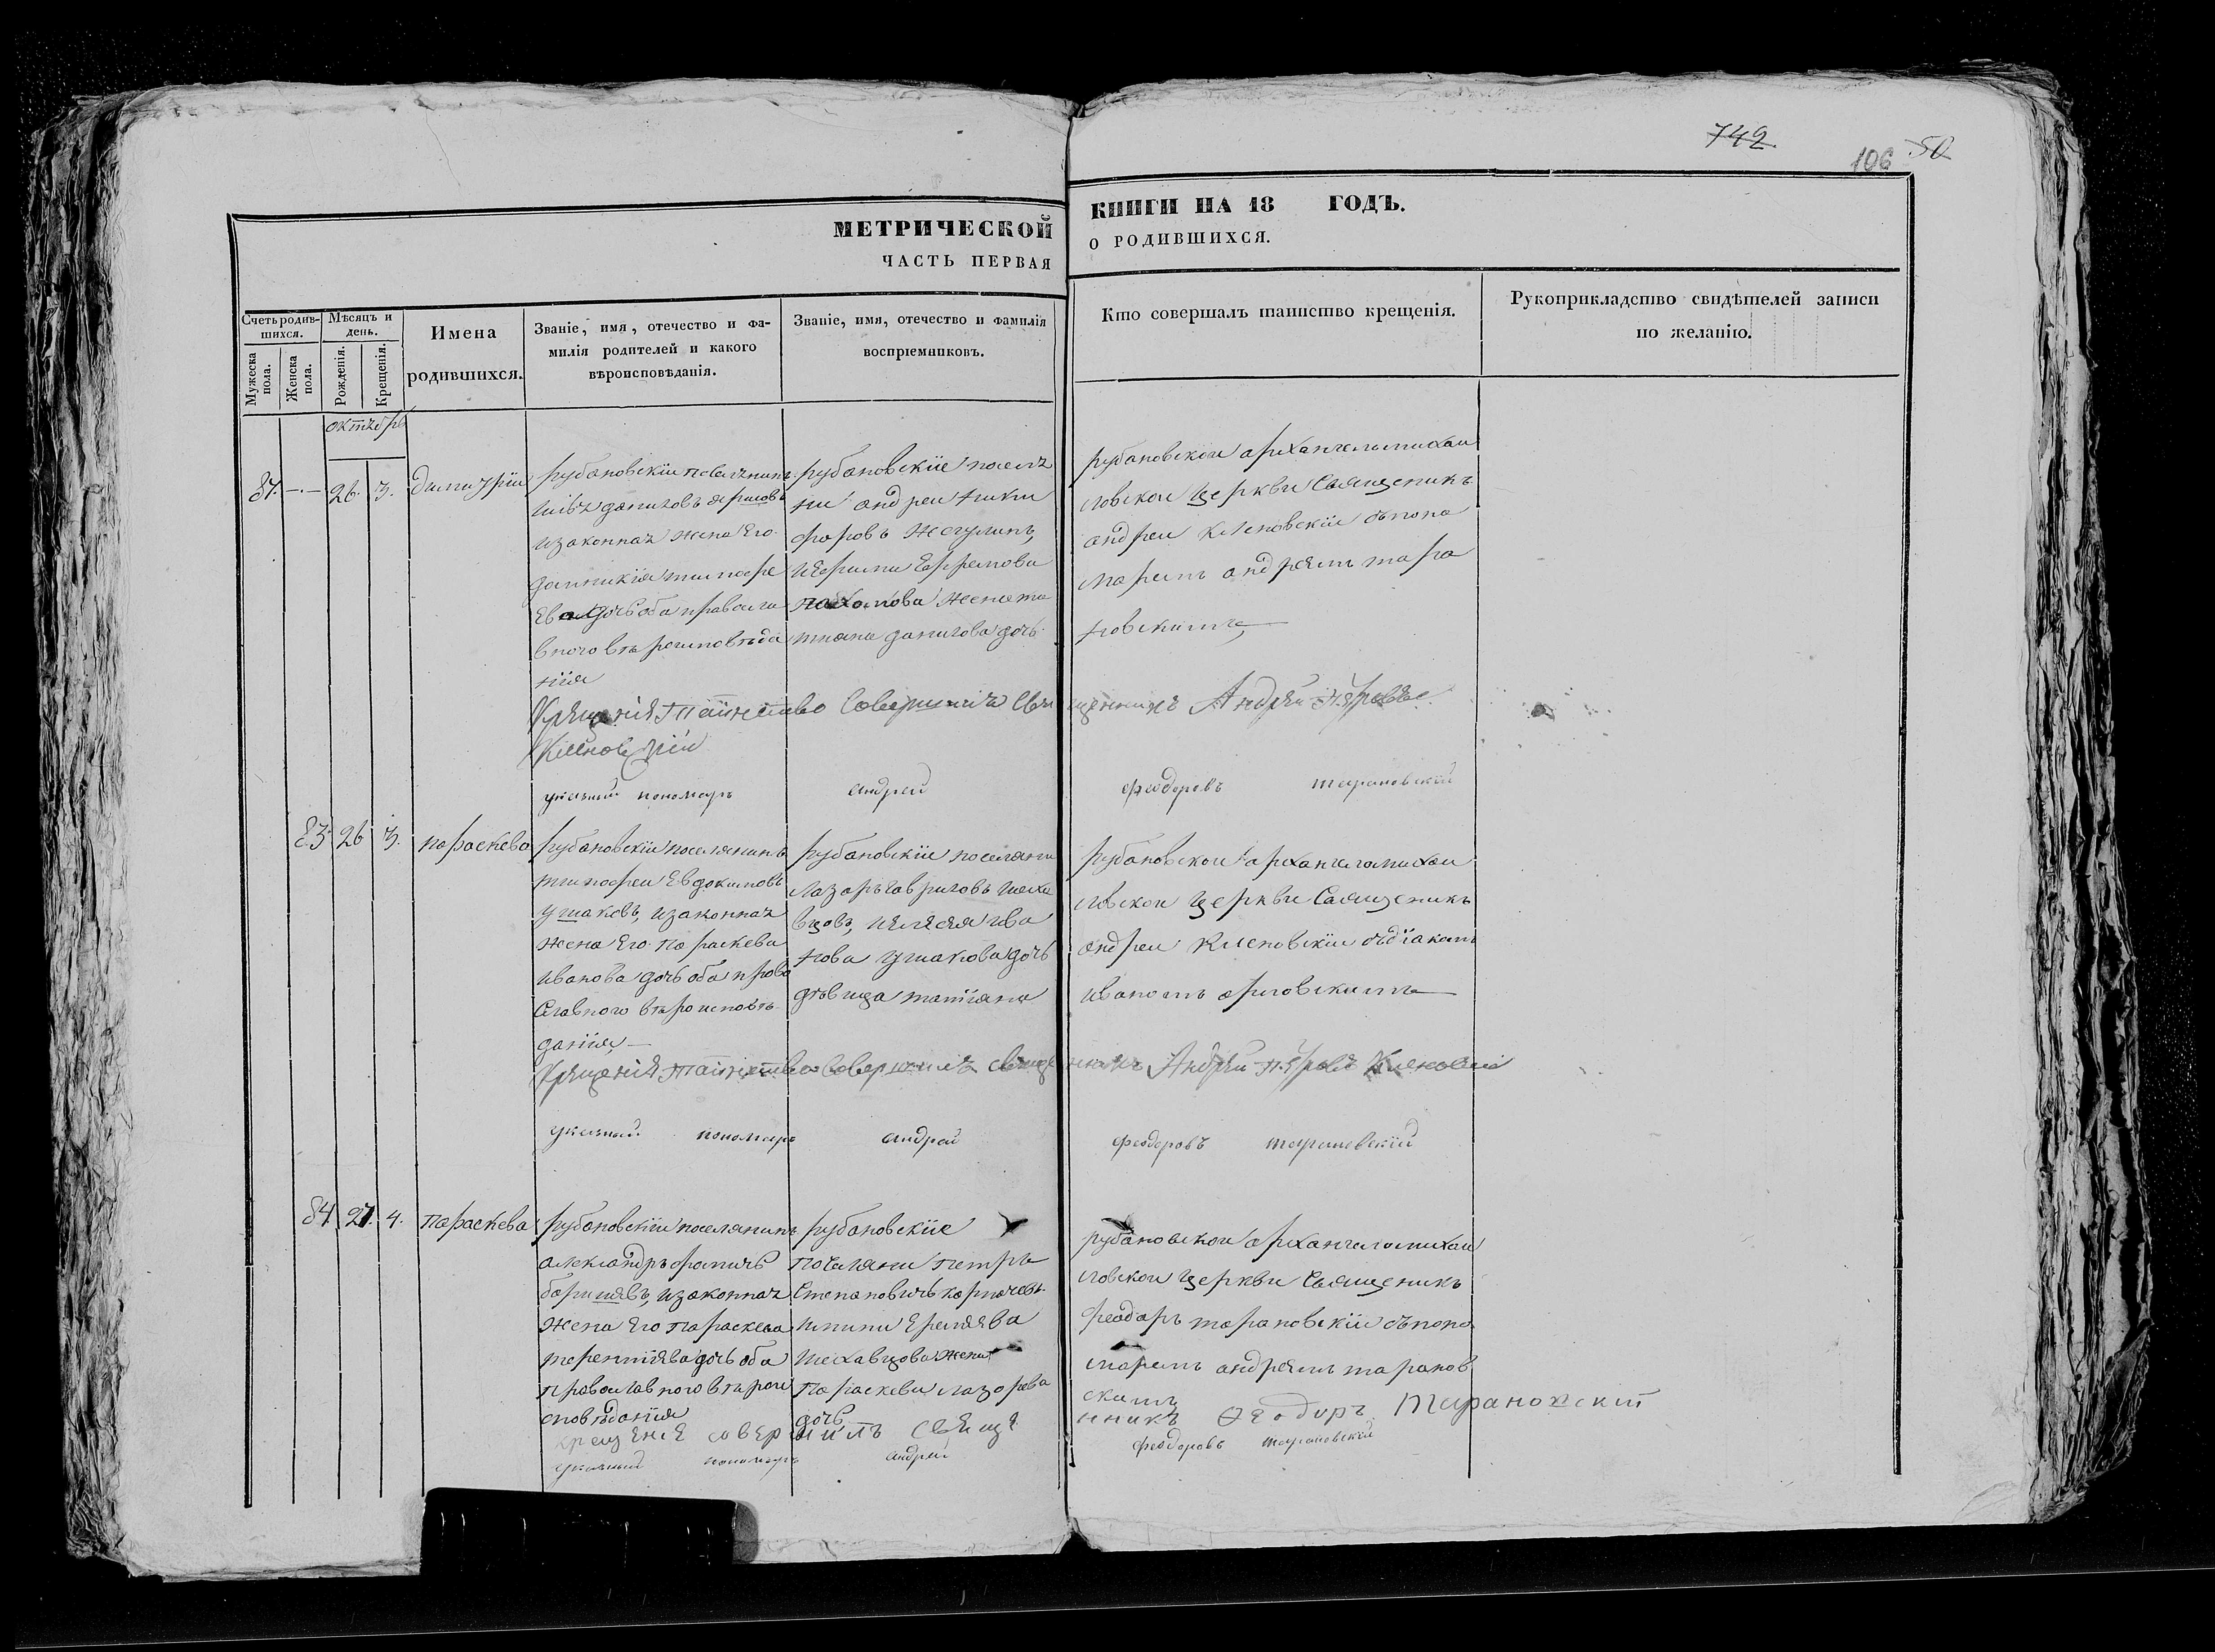 742.
106 50
МЕТРИЧЕСКОЙ КНИГИ НА 18 ГОДЪ.
ЧАСТЬ ПЕРВАЯ О РОДИВШИХСЯ.
Счетъ родившихся.
Мужеска пола.
Женска пола.
Мѣсяцъ и день.
Рожденія.
Крещенія.
Имена родившихся.
Званіе, имя, отечество и фамилія родителей и какого вѣроисповѣданія.
Званіе, имя, отечество и фамилія воспріемниковъ.
Кто совершалъ таинство крещенія.
Рукоприкладство свидѣтелей записи по желанію.
октябрь
87. — 26. 3. димитрій
рубановскіи поселянинъ
даниловъ
изаконная жена Его
дочь оба правосла
вного вѣроисповѣда
нія
рубановскіе поселя
не андреи ники
форовъ
Ефремова
жена та
тіяна данилова дочь
рубановскои архангеломихаи
ловскои церкви Священикъ
андреи Кленовскіи съпоно
маремъ андреемъ тара
новскимъ,
Крещенія Таинство Совершилъ Священникъ Андрей Петровъ
Кленовскій
указный пономарь андрей феодоровъ тарановскій
83 26 3. параскева
рубановскіи поселянинъ
тимофеи Евдокимовъ
ушаковъ, изаконная
жена Его параскева
иванова дочь оба право
Славного вѣроисповѣ
данія,
рубановскіи поселяни
лазарь гавриловъ шеха
вцовъ, ива
нова ушакова дочь
дѣвица татіяна
рубановскои архангеломихаи
ловскои церкви Священикъ
андреи Кленовскіи съдіакомъ
иваномъ орловскимъ
Крещенія Таинство Совершилъ священникъ Андрей Петровъ Кленовскій
указный пономарь андрей феодоровъ тарановскій
84 27. 4. Параскева
рубановскіи поселянинъ
александръ
изаконная
жена Его Параскева
терентіева дочь оба
Православного вѣрои
сповѣданія
рубановскіе
поселяни Петръ
Степановичь
Еремѣева
шехавцова жена
Параскева лазорева
дочь
рубановскои архангеломихаи
ловскои церкви Священикъ
феодоръ тарановскіи съпоно
маремъ андреемъ таранов
скимъ
крещенiе совершилъ священникъ Ѳеодоръ Тарановскій
указный пономарь андрей феодоровъ тарановскій